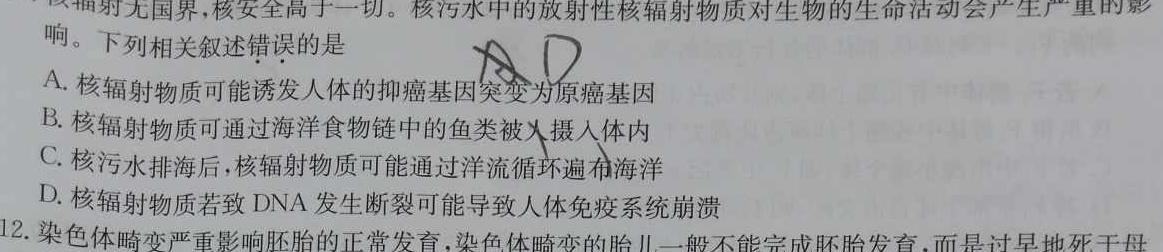 核辐射无国界,核安全高于一切。核污水中的放射性核辐射物质对生物的生命活动会产生严重的影
响。下列相关叙述错误的是
D
A. 核辐射物质可能诱发人体的抑癌基因突变为原癌基因
B. 核辐射物质可通过海洋食物链中的鱼类被人摄入体内
C. 核污水排海后,核辐射物质可能通过洋流循环遍布海洋
D. 核辐射物质若致 DNA 发生断裂可能导致人体免疫系统崩溃
12. 染色体畸变严重影响胚胎的正常发育,染色体畸变的胎儿一般不能完成胚胎发育,而是过早地死于母